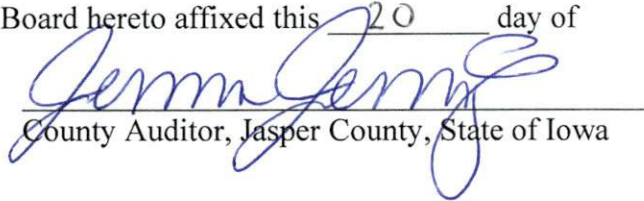 Board hereto affixed this 20 day of
County Auditor, Jasper County, State of Iowa